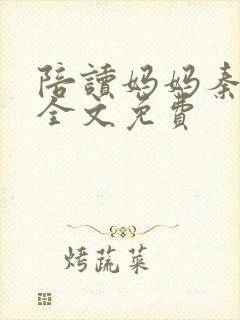 陪讀媽媽秦
全文免費
烤蔬菜